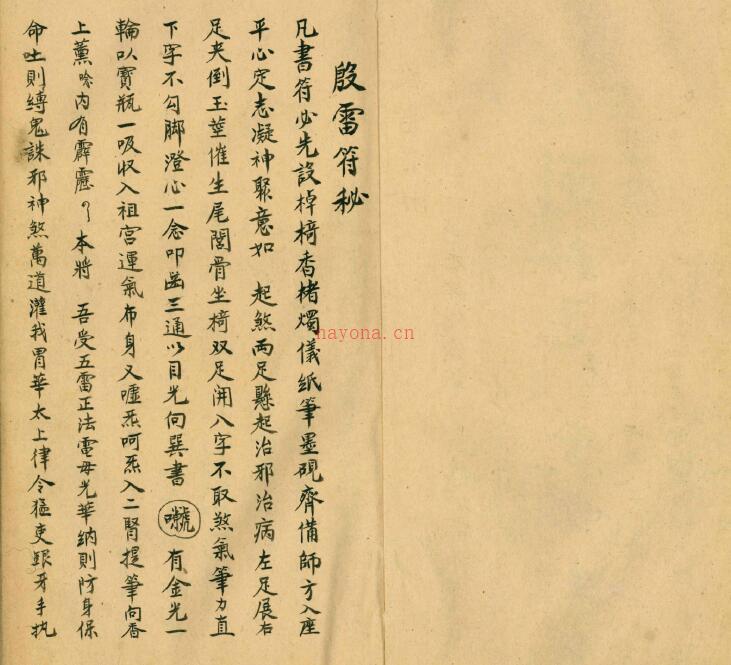 殷雷符秘
凡書符必先設棹椅香楮燭儀紙筆墨硯齊備師方入座
平心定志凝神聚意如 起煞兩足懸起治邪治病左足展右
足夹倒玉莖催生尾閭骨坐椅双足開八字不取煞氣筆力直
下字不勾脚澄心一念叩齒三通以目光向巽書 有金光一
輪以寶瓶一吸収入祖宫運氣布身又噓炁呵炁入二腎提筆向香
上薰 内有霹靂 本將 吾受五雷正法電母光華納則防身保
命吐則縛鬼誅邪神煞萬道灌我胃華太上律令猛吏銀牙手执
nayona.cn